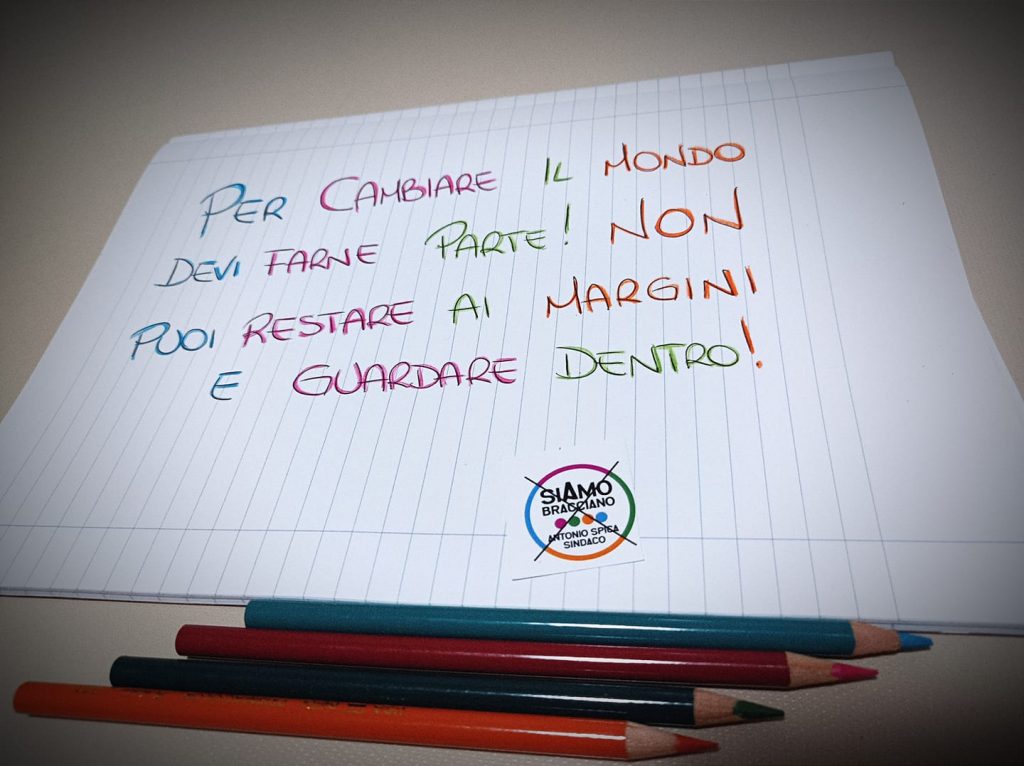 PER CAMBIARE IL MONDO
DEVI FARNE PARTE! NON
PUOI RESTARE AI MARGINI
E GUARDARE DENTRO!
SIAMO
BRACCIANO
ANTONIO SPICA
SINDACO